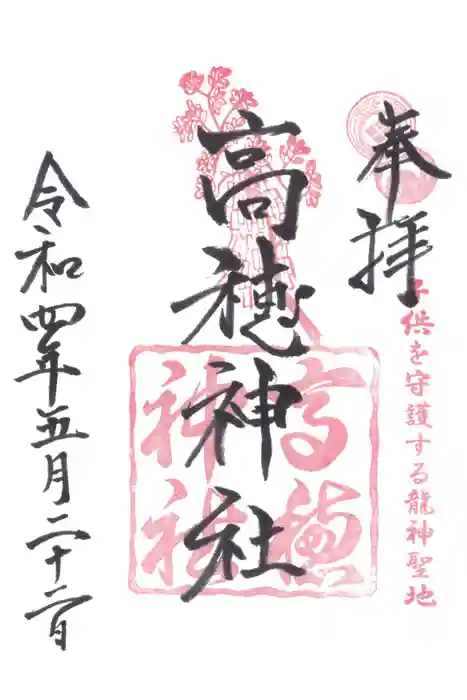 奉拝
子供を守護する龍神聖地
高穂神社
高穂
神社
令和四年五月二十二日